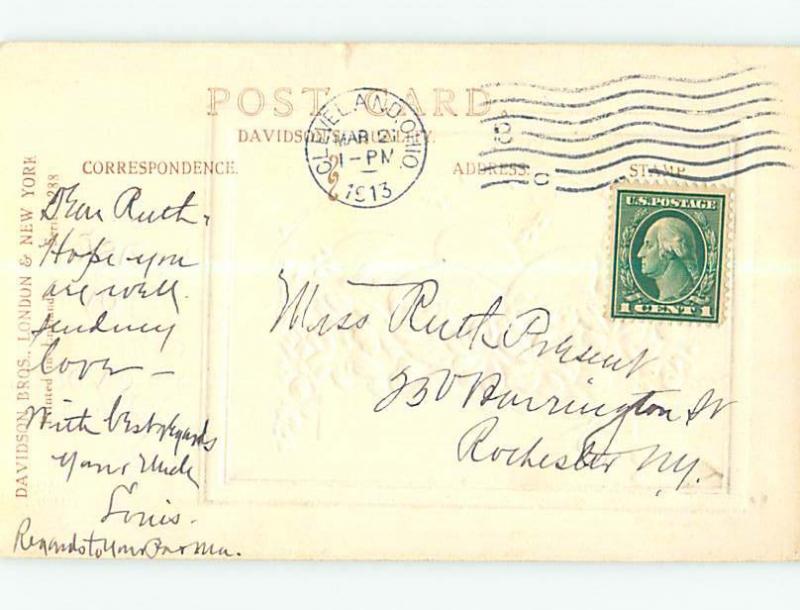 POST CARD.
DAVIDSON
CORRESPONDENCE.
ADDRESS.
STAMP
CLEVELAND, OHIO.
MAR 2
1-PM
1913
U.S. POSTAGE
1 CENT 1
DAVIDSON BROS., LONDON & NEW YORK
288
Dear Ruth,
Hope you
are well.
sending
love —
With best regards
Your Uncle
Louis.
Regards to your Pa & Ma.
Miss Ruth Present
250 Harrington St
Rochester N.Y.